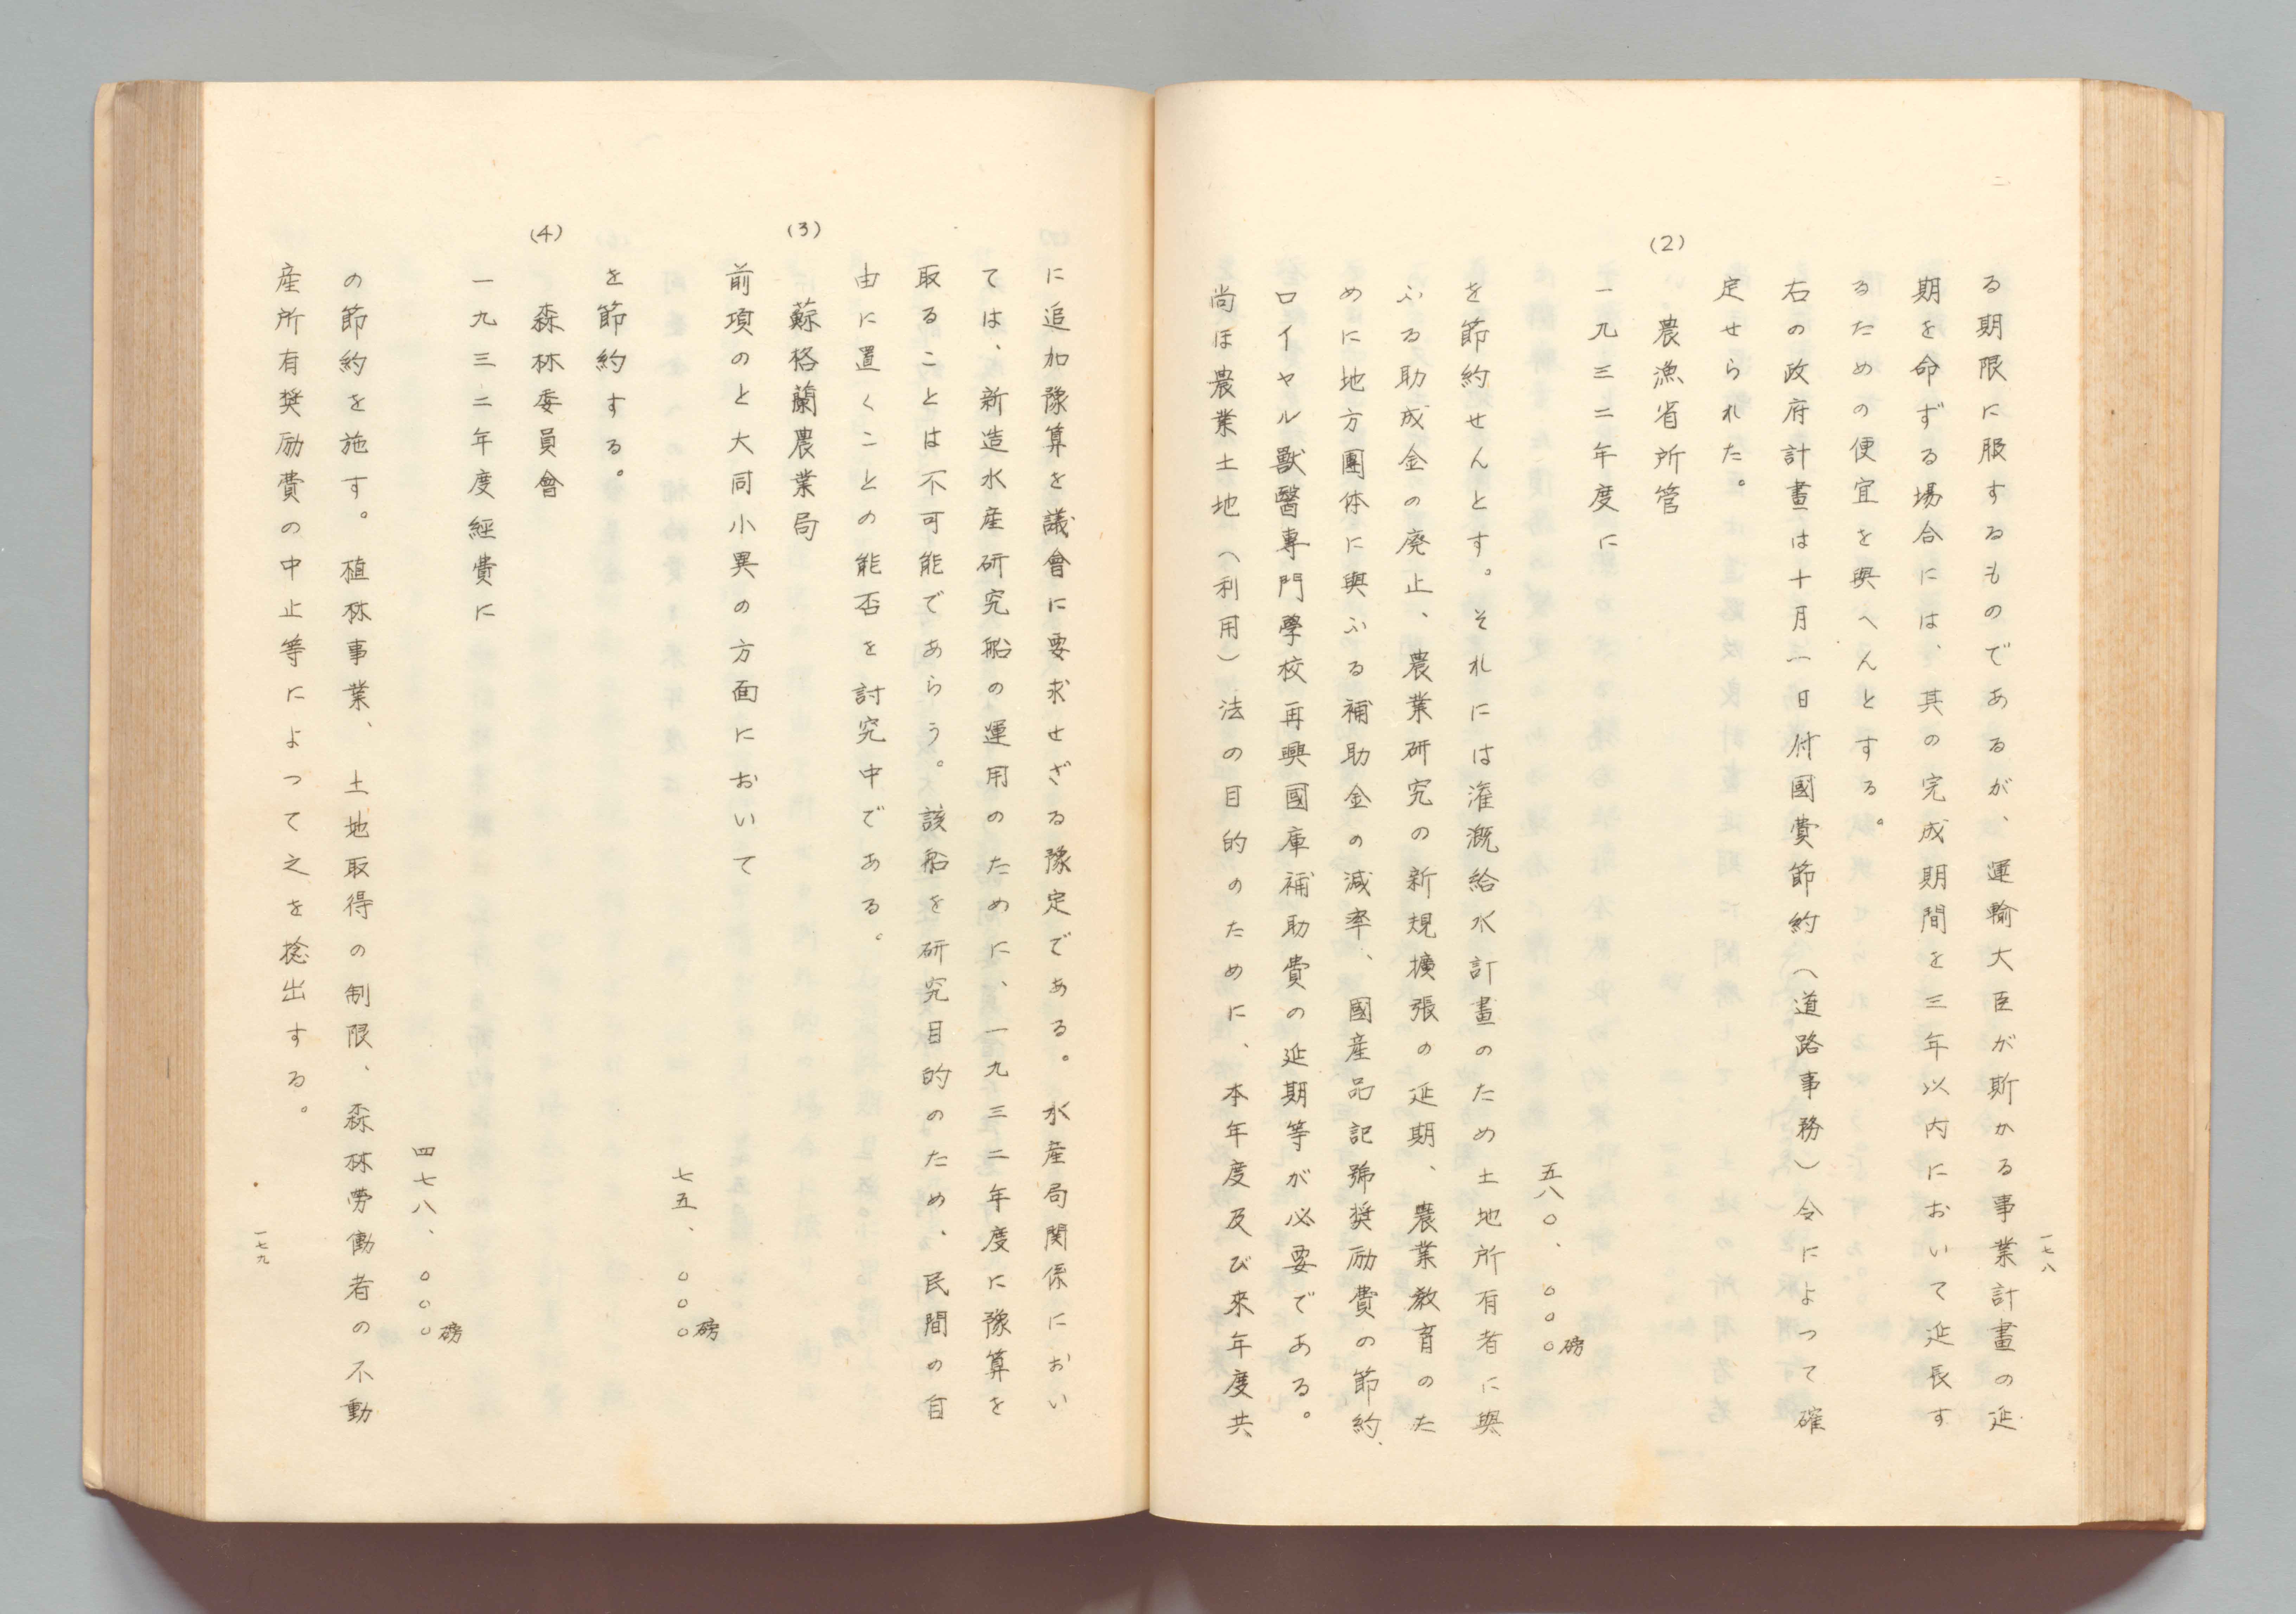 一七八
る期限に服するものであるが、運輸大臣が斯かる事業計畫の延
期を命ずる場合には、其の完成期間を三年以内において延長す
るための便宜を與へんとする。
右の政府計畫は十月一日付國費節約（道路事務）令によつて確
定せられた。
(2) 農漁省所管
一九三二年度に
五八〇、〇〇〇磅
を節約せんとす。それには灌漑給水計畫のため土地所有者に與
ふる助成金の廃止、農業研究の新規擴張の延期、農業教育のた
めに地方團体に與ふる補助金の減率、國産品記號奨励費の節約、
ロイヤル獸醫專門學校再興國庫補助費の延期等が必要である。
尚ほ農業土地（利用）法の目的のために、本年度及び來年度共
に追加豫算を議會に要求せざる豫定である。水産局関係におい
ては、新造水産研究船の運用のために、一九三二年度に豫算を
取ることは不可能であらう。該船を研究目的のため、民間の自
由に置くことの能否を討究中である。
(3) 蘇格蘭農業局
前項のと大同小異の方面において
七五、〇〇〇磅
を節約する。
(4) 森林委員會
一九三二年度經費に
四七八、〇〇〇磅
の節約を施す。植林事業、土地取得の制限、森林勞働者の不動
産所有奨励費の中止等によつて之を捻出する。
一七九